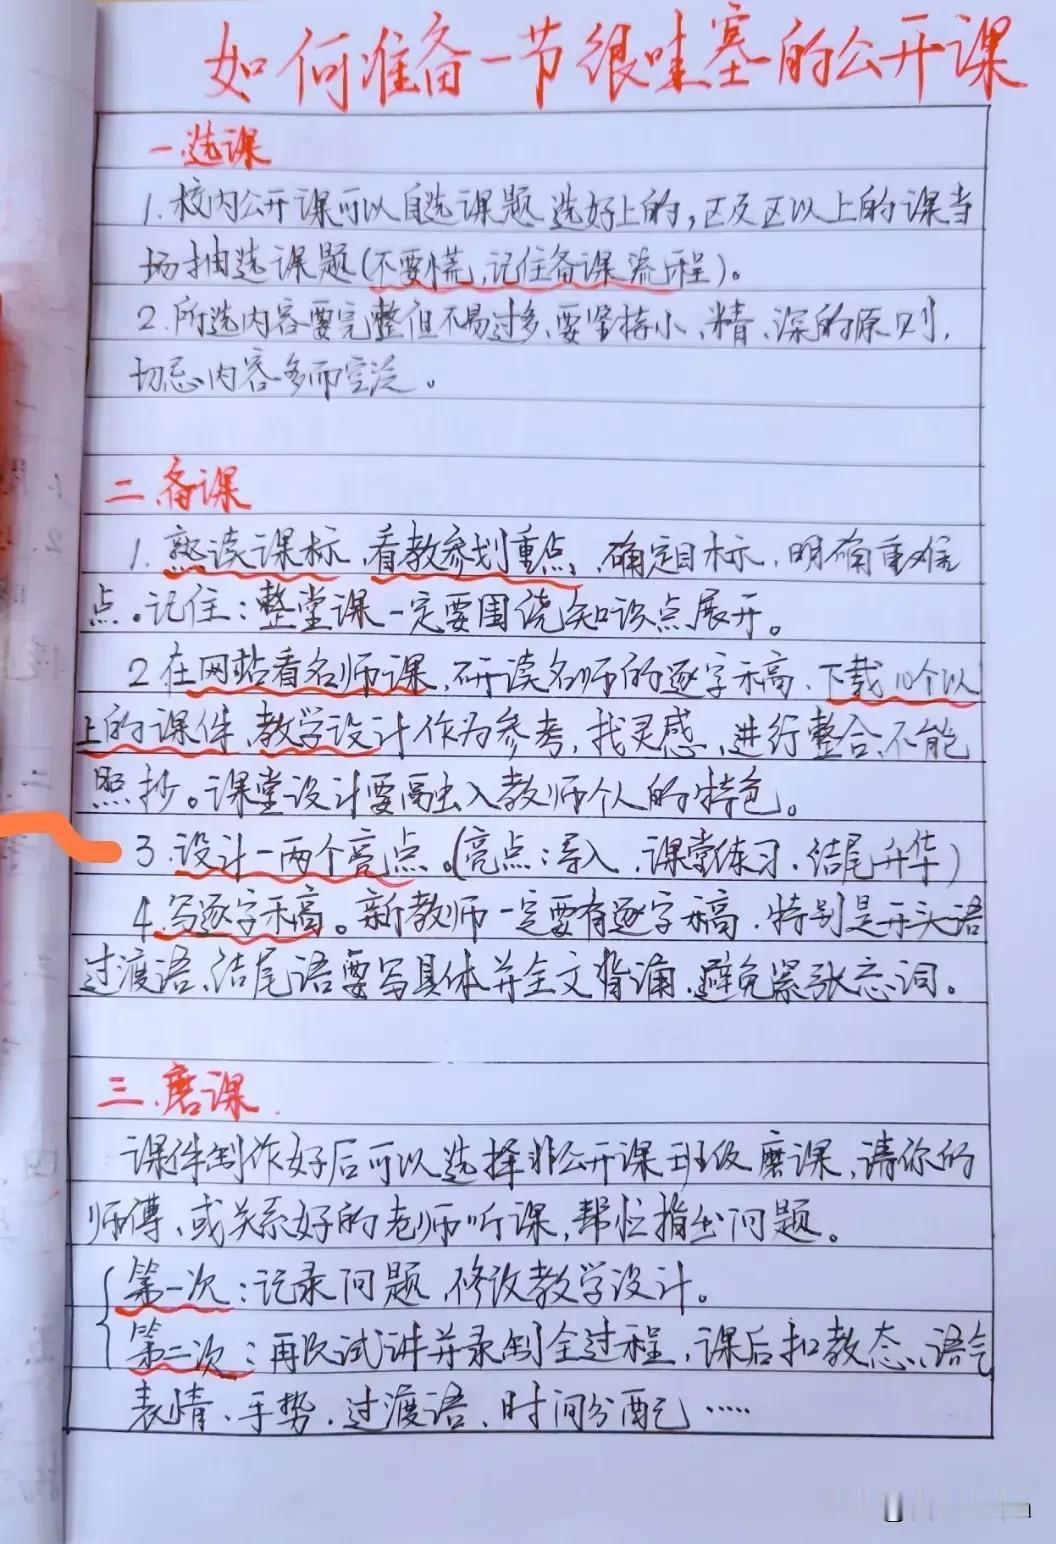 如何准备一节很哇塞的公开课
一.选课
1.校内公开课可以自选课题.选好上的,区及区以上的课当
场抽选课题(不要慌,记住备课流程)。
2.所选内容要完整但不易过多、要坚持小、精、深的原则,
切忌内容多而空泛。
二.备课
1.熟读课标,看教参划重点,确定目标,明确重难
点。记住:整堂课一定要围绕知识点展开。
2.在网站看名师课,研读名师的逐字稿,下载10个以
上的课件、教学设计作为参考,找灵感,进行整合,不能
照抄。课堂设计要融入教师个人的特色。
3.设计一两个亮点。(亮点:导入、课堂练习、结尾升华)
4.写逐字稿。新教师一定要有逐字稿.特别是开头语
过渡语、结尾语要写具体并全文背诵,避免紧张忘词。
三.磨课.
课件制作好后可以选择非公开课班级磨课,请你的
师傅、或关系好的老师听课,帮忙指出问题。
第一次:记录问题,修改教学设计。
第二次:再次试讲并录制全过程,课后扣教态、语气
表情、手势、过渡语、时间分配……